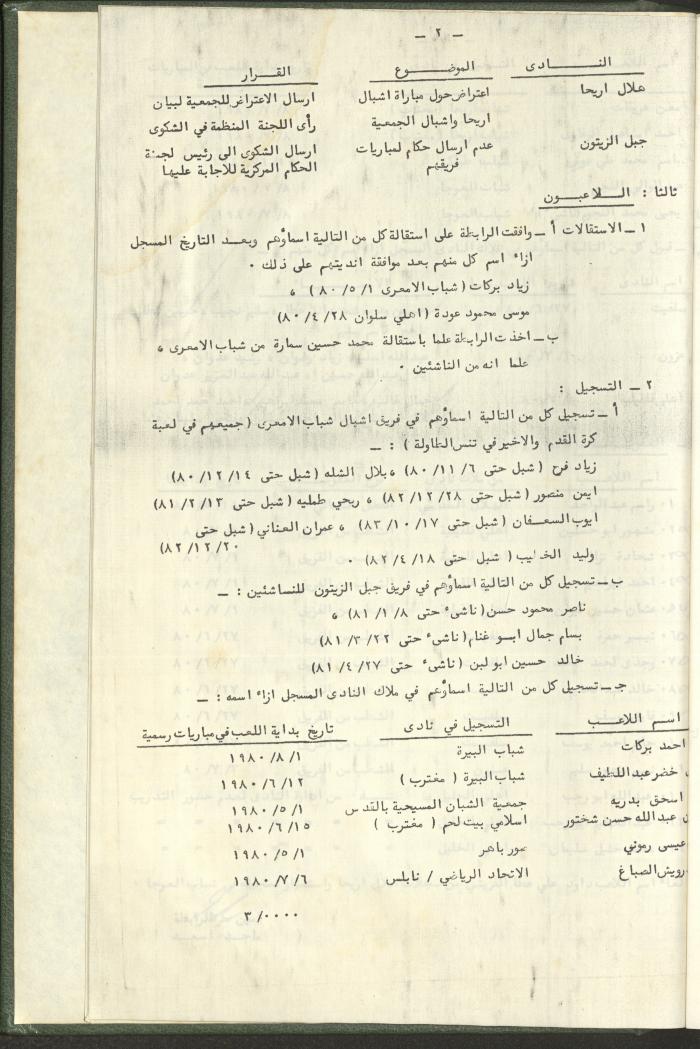 ـ ٢ ـ
النـــــادى الموضـــــوع القـــرار
هلال اريحا اعتراض حول مباراة اشبال ارسال الاعتراض للجمعية لبيان
اريحا واشبال الجمعية رأى اللجنة المنظمة في الشكوى
جبل الزيتون عدم ارسال حكام لمباريات ارسال الشكوى الى رئيس لجنة
فريقهم الحكام المركزية للاجابة عليها
ثالثا : الـــلاعبـــون
١ ـ الاستقالات أ ـ وافقت الرابطة على استقالة كل من التالية اسماؤهم وبعـد التاريخ المسجل
ازاء اسم كل منهم بعد موافقة انديتهم على ذلك ٠
زياد بركات ( شباب الامعرى ١ /٥ /٨٠ ) ،
موسى محمود عودة ( اهلي سلوان ٢٨ /٤ /٨٠)
ب ـ اخذت الرابطة علما باستقالة محمد حسين سمارة من شباب الامعرى ،
علما انه من الناشئين ٠
٢ ـ التسجيل :
أ ـ تسجيل كل من التالية اسماؤهم في فريق اشبال شباب الامعرى ( جميعهم في لعبة
كرة القدم والاخير في تنس الطاولة ) : ـ
زياد فرح ( شبل حتى ٦ /١١ /٨٠) ، بلال الشله ( شبل حتى ١٤ /١٢ /٨٠)
ايمن منصور ( شبل حتى ٢٨ /١٢ /٨٢) ، ربحي طمليه ( شبل حتى ١٣ /٢ /٨١)
ايوب السعـفان ( شبل حتى ١٧ /١٠ /٨٣) ، عمران العناني ( شبل حتى
٢٠ /١٢ /٨٢)
وليد الخطيب ( شبل حتى ١٨ /٤ /٨٢) ٠
ب ـ تسجيل كل من التالية اسماؤهم في فريق جبل الزيتون للناشئين : ـ
ناصر محمود حسن ( ناشىء حتى ٨ /١ /٨١) ،
بسام جمال ابـو غنام ( ناشىء حتى ٢٢ /٣ /٨١)
خالد حسين ابو لبن ( ناشىء حتى ٢٧ /٤ /٨١)
جـ ـ تسجيل كل من التالية اسماؤهم في ملاك النادى المسجل ازاء اسمه : ـ
اسـم اللاعـب التسجيل في نادى تاريخ بداية اللعب في مباريات رسمية
احمد بركات شباب البيرة ١ /٨ /١٩٨٠
خضر عبد اللطيف شباب البيرة ( مغترب ) ١٢ /٦ /١٩٨٠
اسحق بدريه جمعية الشبان المسيحية بالقدس ١ /٥ /١٩٨٠
عبد الله حسن شختور اسلامي بيت لحم ( مغترب ) ١٥ /٦ /١٩٨٠
عيسى رموني صور باهر ١ /٥ /١٩٨٠
درويش الصباغ الاتحاد الرياضي / نابلس ٦ /٧ /١٩٨٠
٣/٠٠٠٠